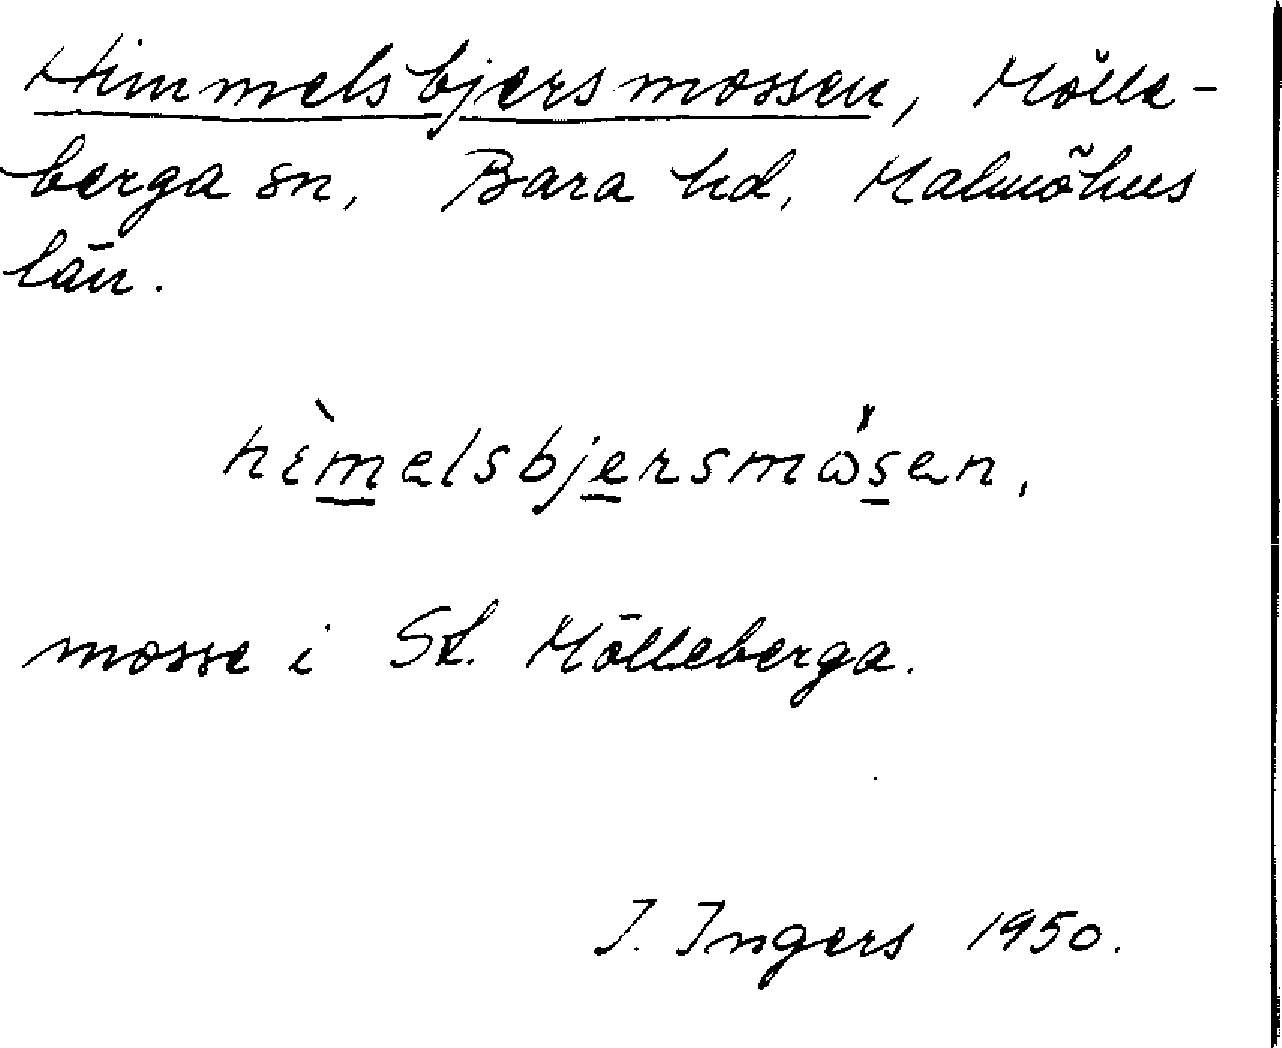 Himmelsbjersmossen, Mölle-
berga sn, Bara hd, Malmöhus
län.
hìmelsbjersmɷ̈sen,
mosse i St. Mölleberga.
I. Ingers 1950.